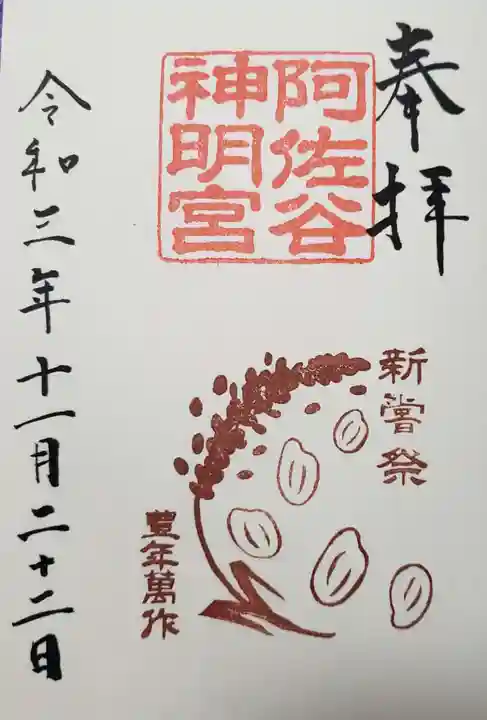 奉拝
阿佐谷
神明宮
新嘗祭
豊年萬作
令和三年十一月二十二日